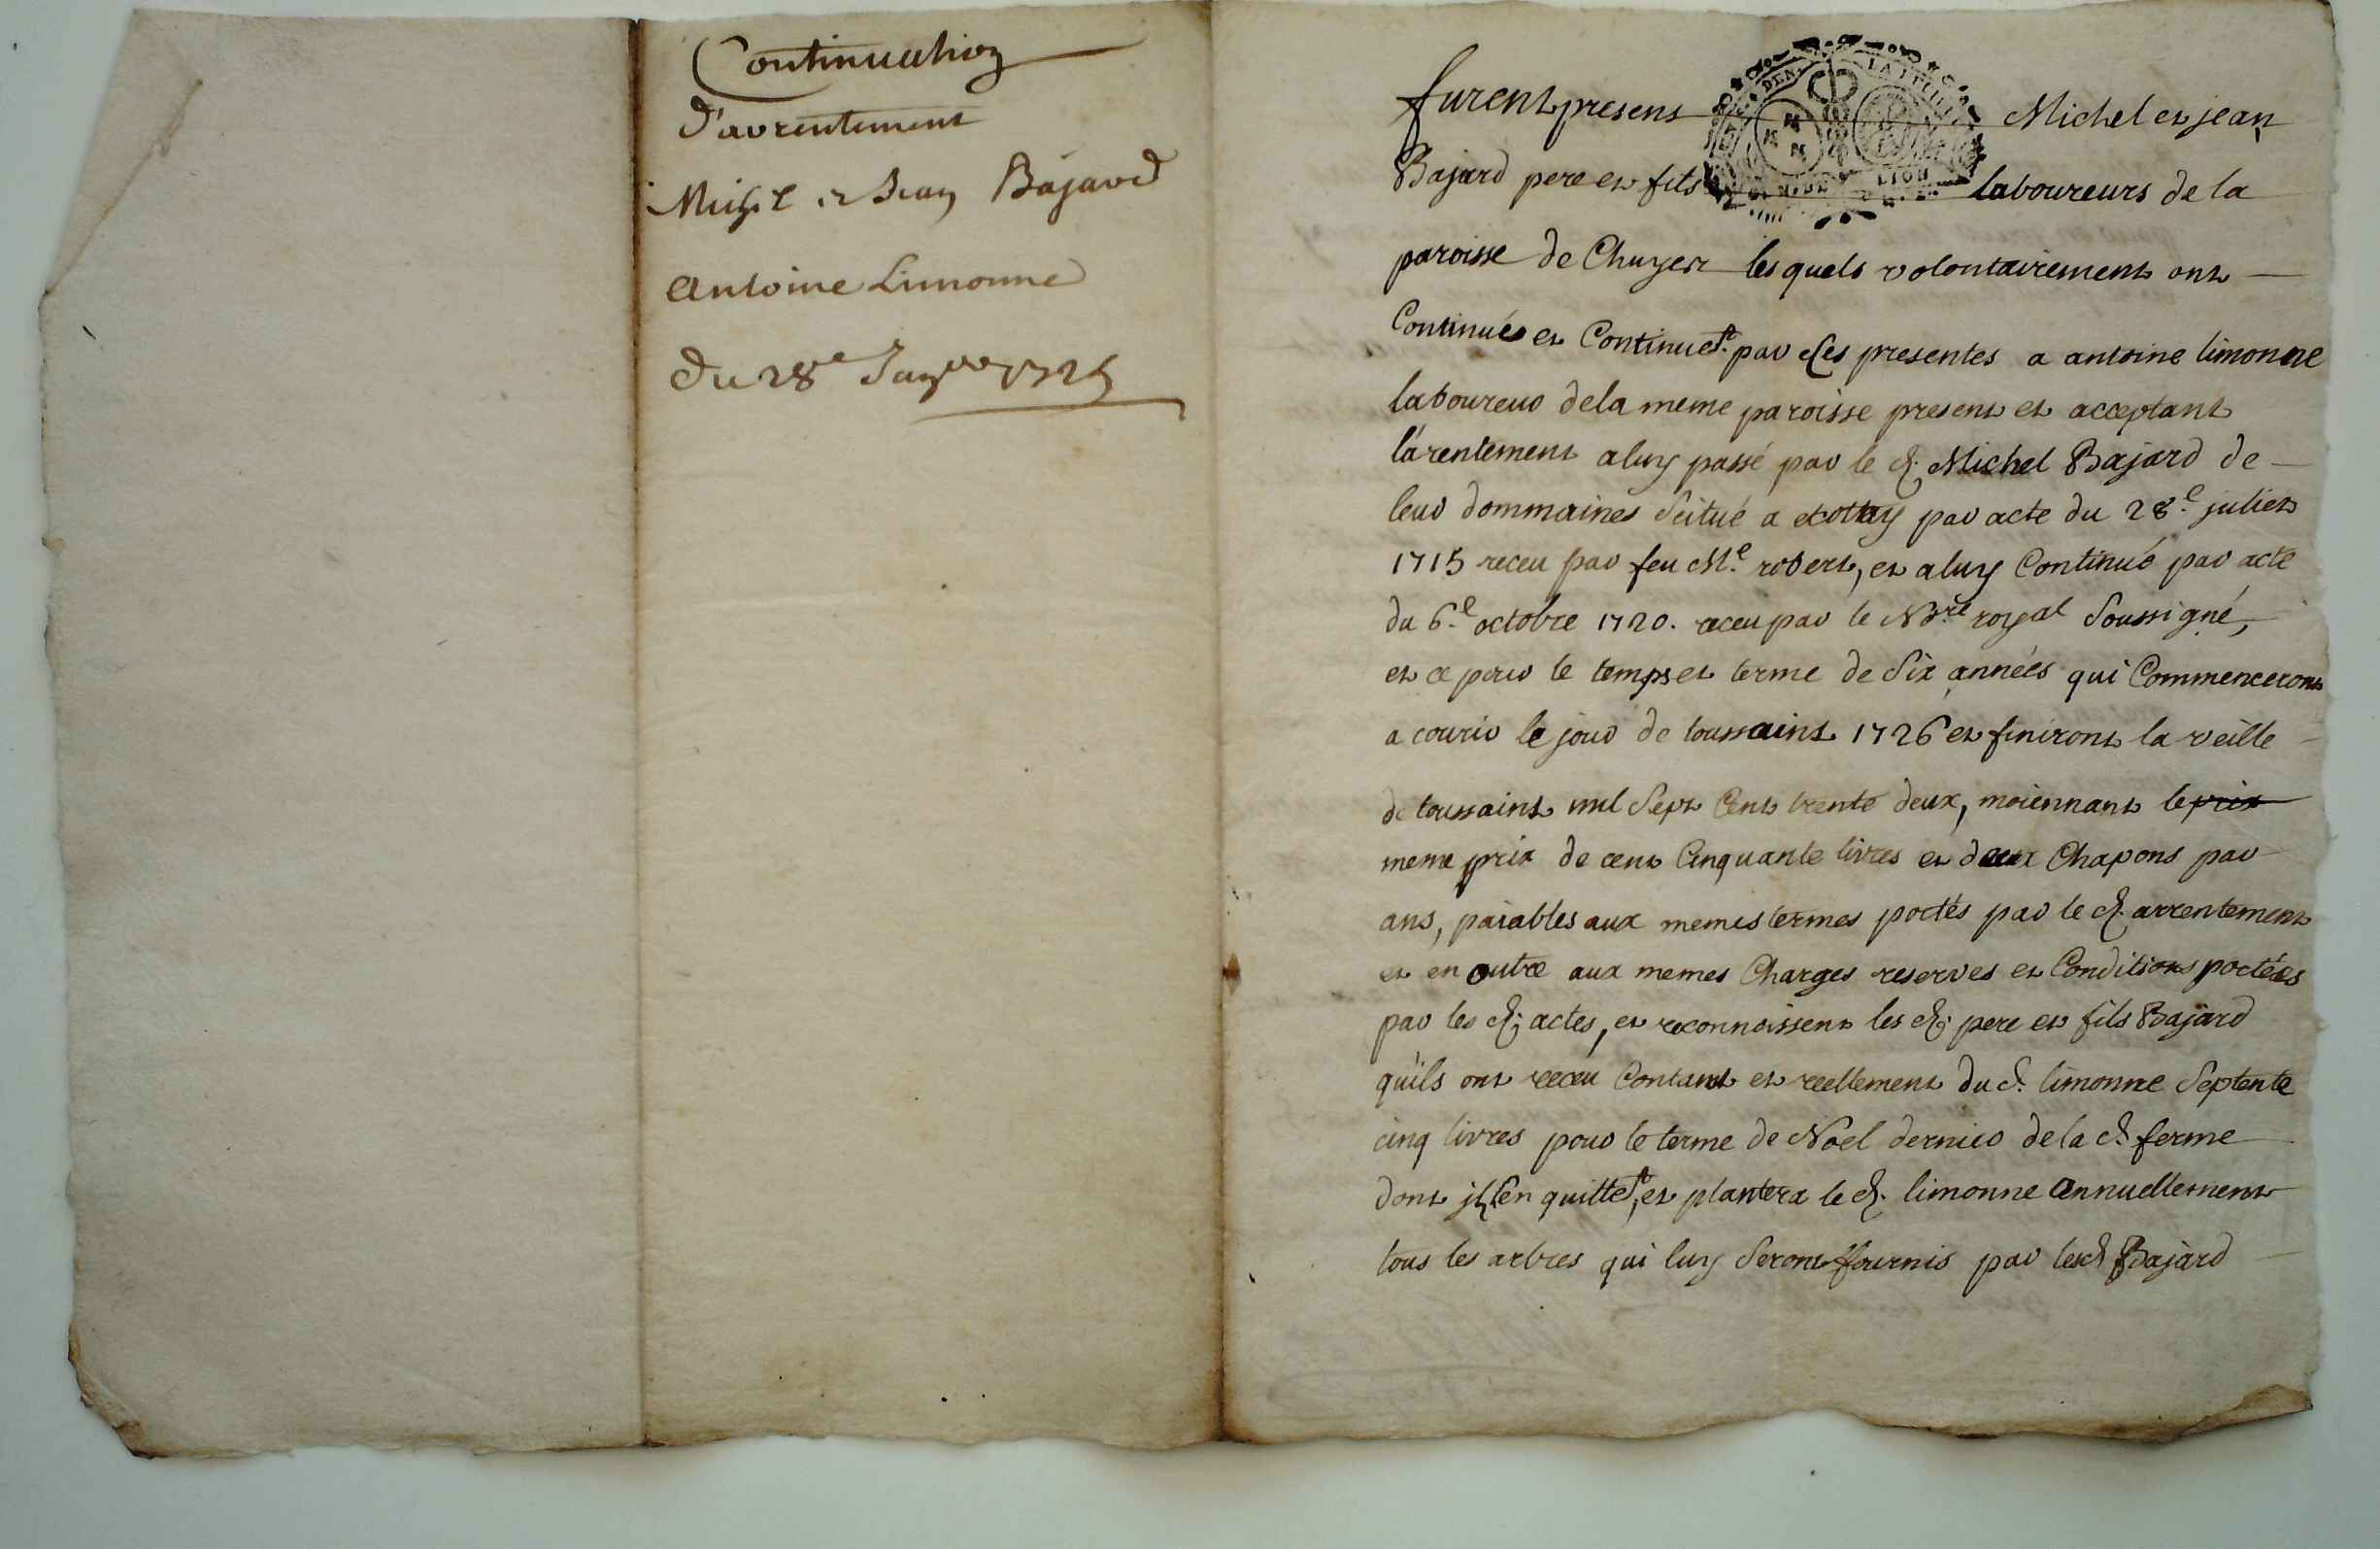 Continuation
d'arrentement
Michel et Jean Bajard
Antoine Limonne
du 28e Janvier 1725
furent presens Michel et jean
Bajard pere et fils laboureurs de la
paroisse de Chuyer les quels volontairement ont
Continués et Continuet par Ces presentes a antoine limonne
laboureur dela meme paroisse present et acceptant
l'arentement a luy passé par le d. Michel Bajard de
leur dommaines Scitué a par acte du 28e juliet
1715 receu par feu Me robert, et a luy Continué par acte
du 6e octobre 1720. receu par le Nre royal Soussigné,
et ce pour le temps et terme de Six années qui Commenceront
a courir le jour de toussaint 1726 et finiront la veille
de toussaint mil Sept Cent trente deux, moiennant le prix
meme prix de cent Cinquante livres et deux Chapons par
ans, païables aux memes termes portés par le d. arrentement
et en outre aux memes Charges reserves et Conditions portées
par les d. actes, et reconnoissent les d. pere et fils Bajard
qu'ils ont receu Contant et reellement du d. limonne Septente
cinq livres pour le terme de Noel dernier de la d. ferme
dont jls en quittet, et plantera le d. limonne annuellement
tous les arbres qui luy Seront fournis par les d Bajard
DE LION